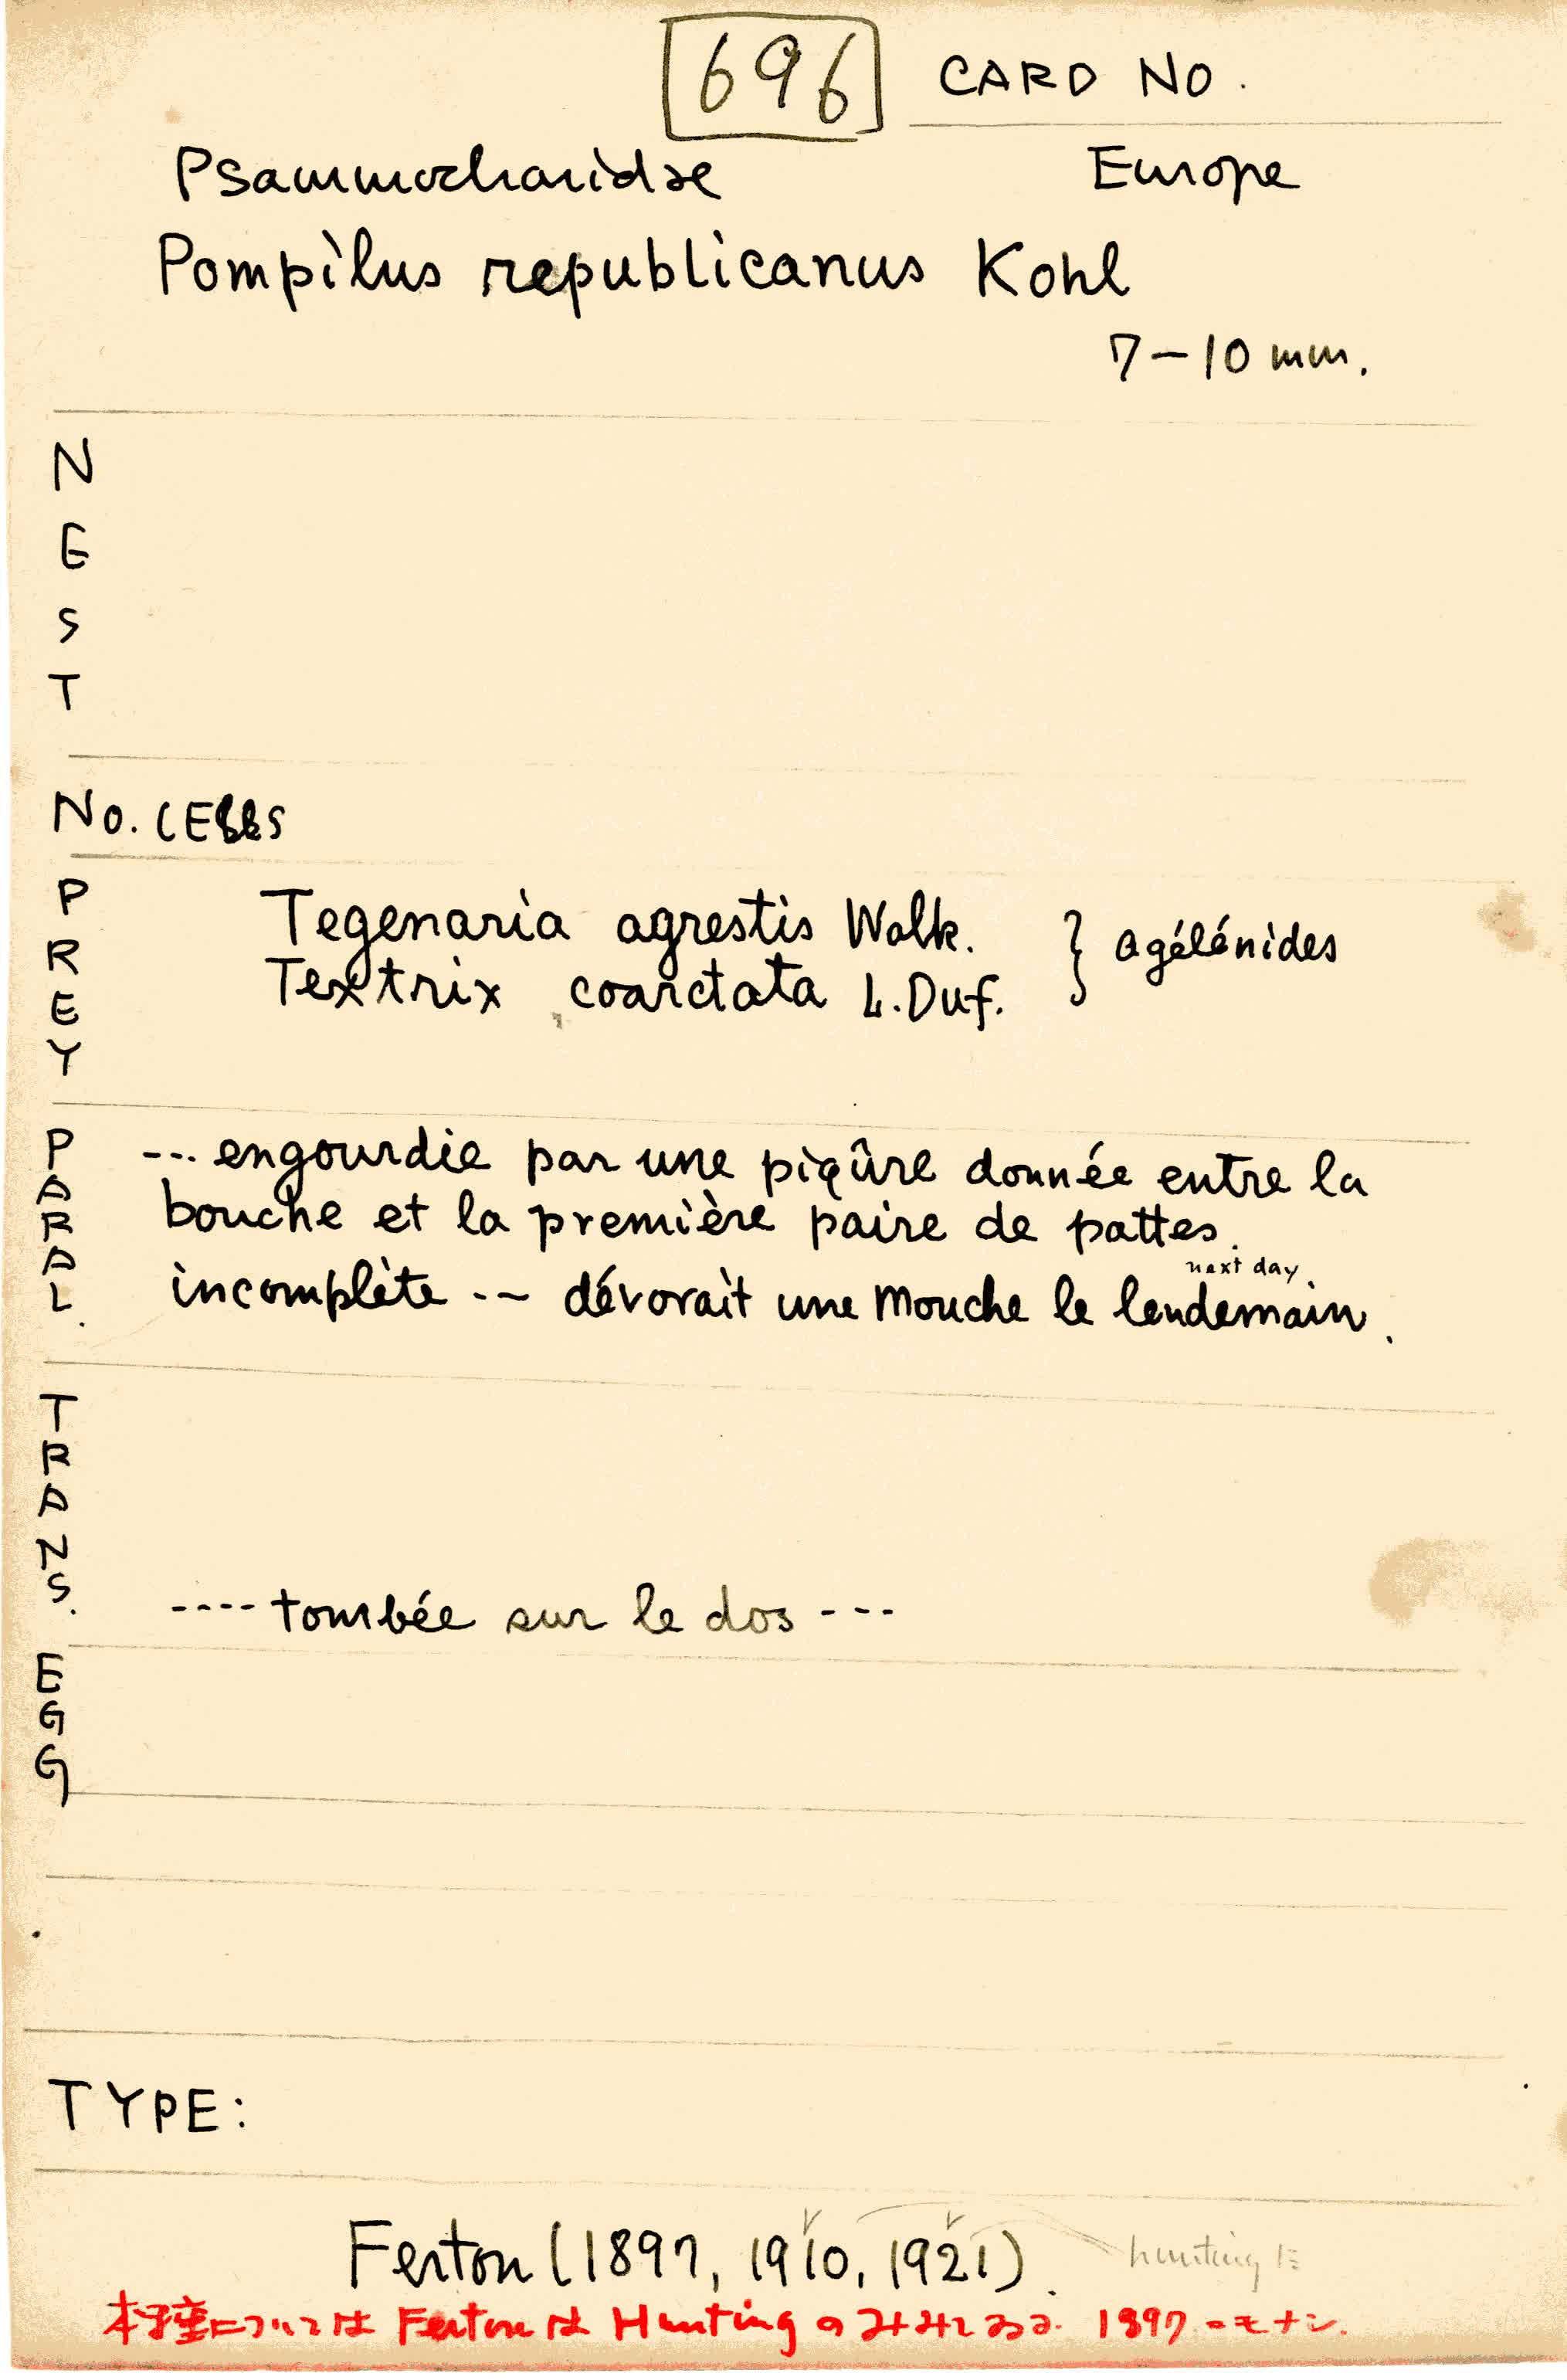 696 CARD NO.
Psammocharidae Europe
Pompilus republicanus Kohl
7-10 mm.
NEST
No. CELLS
PREY
Tegenaria agrestis Walk.
Textrix coarctata L. Duf.
} agélénides
PARAL.
--- engourdie par une piqûre donnée entre la
bouche et la première paire de pattes.
next day.
incomplète --- dévorait une mouche le lendemain.
TRANS.
---- tombée sur le dos ---
EGG
TYPE:
Ferton (1897, 1910, 1921). hunting
本種については Ferton は Hunting のみみておる. 1897 ニモナシ.